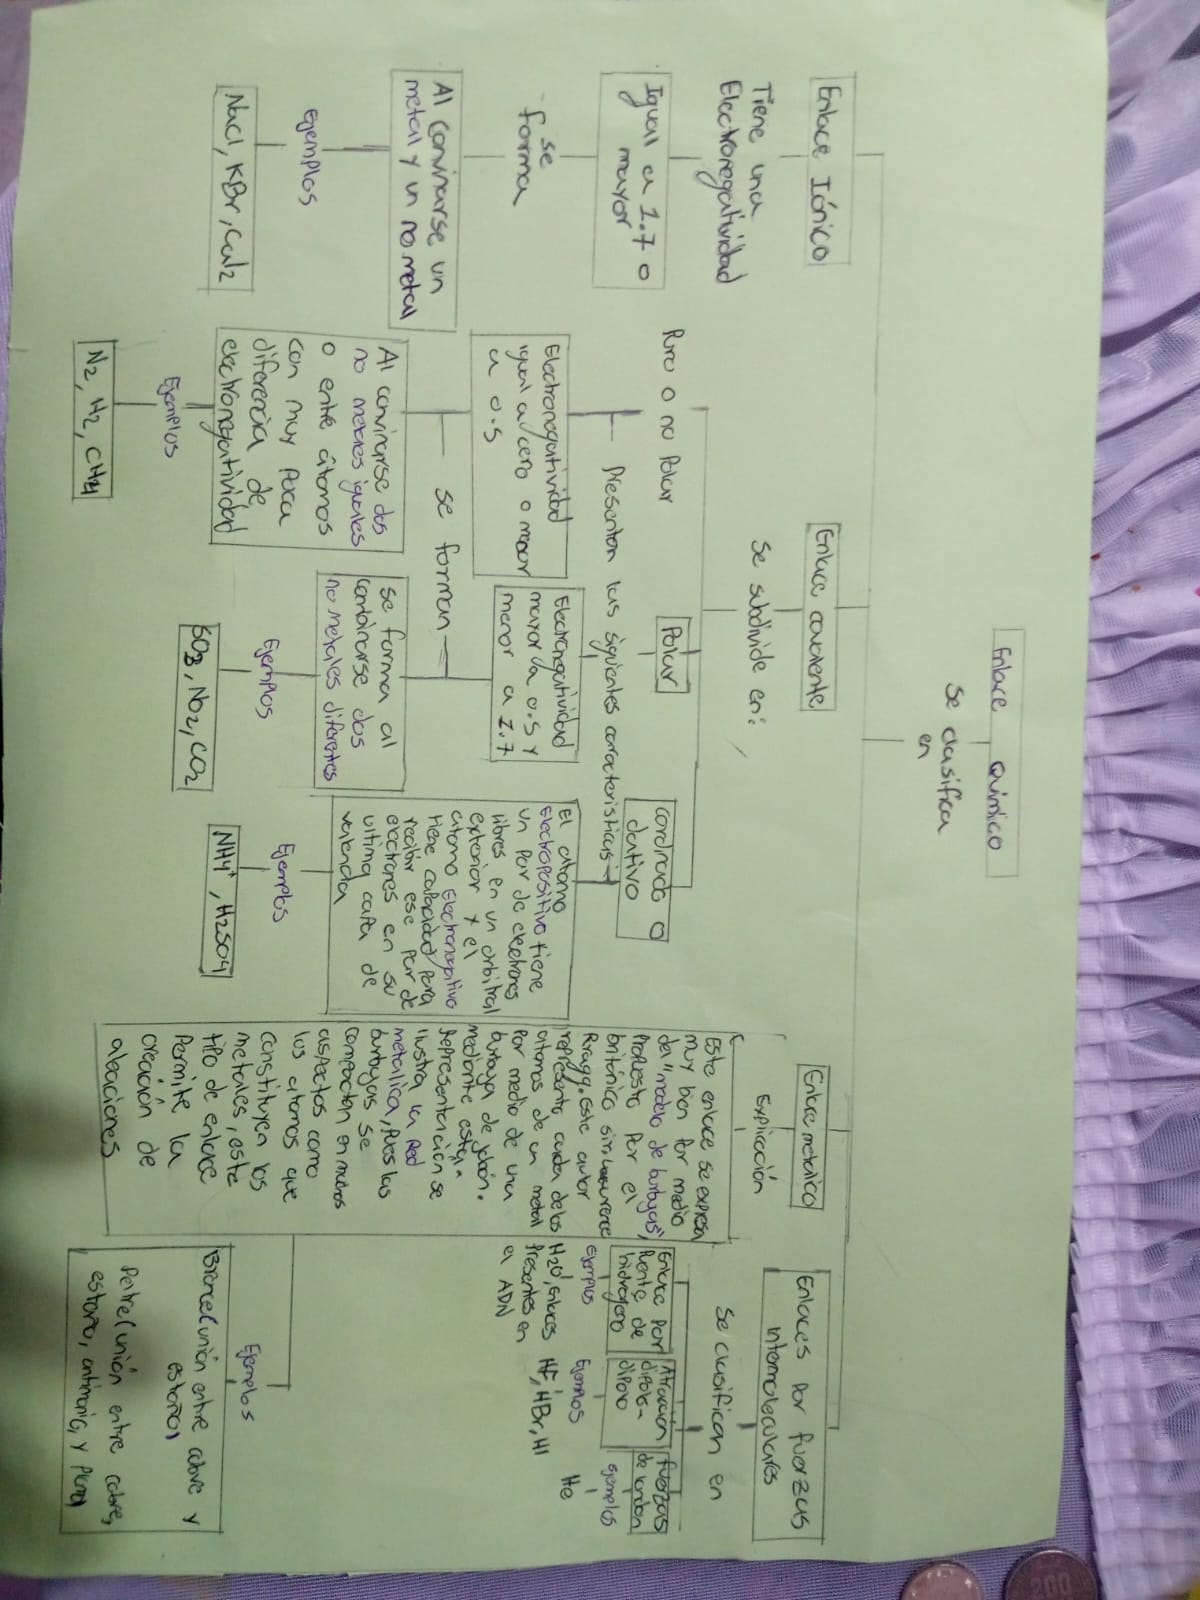 Enlace Químico
Se clasifica
en
Enlace Iónico
Tiene una
Electronegatividad
Igual a 1.7 o
mayor
se
forma
Al convinarse un
metal y un no metal
ejemplos
NaCl, KBr,
Enlace covalente
Se subdivide en:
Puro o no Polar
Polar
cordinado o
dativo
Presentan las siguientes caracteristicas
Electronegatividad
igual a cero o menor
a 0.5
Electronegatividad
mayor a 0.5 y
menor a 1.7
El atomo
Electropositivo tiene
un Par de electrones
libres en un orbital
exterior y el
atomo Electronegativo
tiene capacidad para
recibir ese par de
electrones en su
ultima capa de
valencia
se forman
Al convinarse dos
no metales iguales
o entre átomos
con muy Poca
diferencia de
electronegatividad
Se forma al
combinarse dos
no metales diferentes
Ejemplos
N2, H2, CH4
Ejemplos
NO2, CO2
Ejemplos
NH4+, H2SO4
Enlace metalico
Explicación
Este enlace se expresa
muy bien por medio
del "modelo de burbujas",
Propuesto por el
británico sir Lawrence
Bragg. Este autor
representa cada delos
atomos de un metal
Por medio de una
burbuja de jabón.
mediante esta
Representación se
ilustra la Red
metalica, Pues las
burbujas se
comportan en muchos
aspectos como
los atomos que
constituyen los
metales, este
tipo de enlace
Permite la
creación de
aleaciones
Ejemplos
Bronce(unión entre cobre y
estaño)
Peltre(unión entre cobre,
estaño, antimonio, y Plomo)
Enlaces por fuerzas
intermoleculares
Se clasifican en
Enlace por
Puente de
hidrogeno
ejemplos
H2O, Enlaces
Presentes en
el ADN
Atracción
dipolo-
dipolo
Ejemplos
HF, HBr, HI
fuerzas
de london
ejemplos
He
200